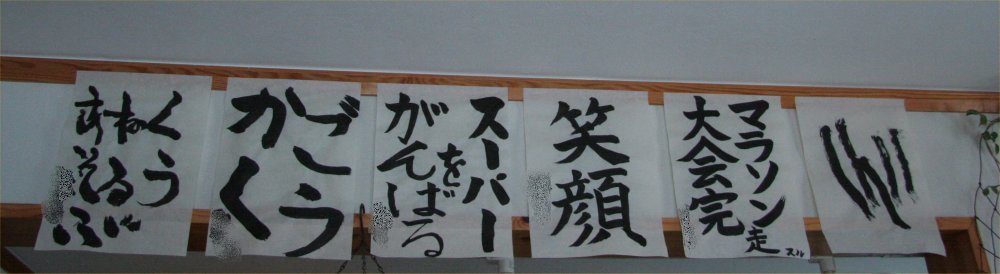 マラソン
大会完
走スル
笑顔
スーパー
を
がんばる
づこう
かく
くう
ねる